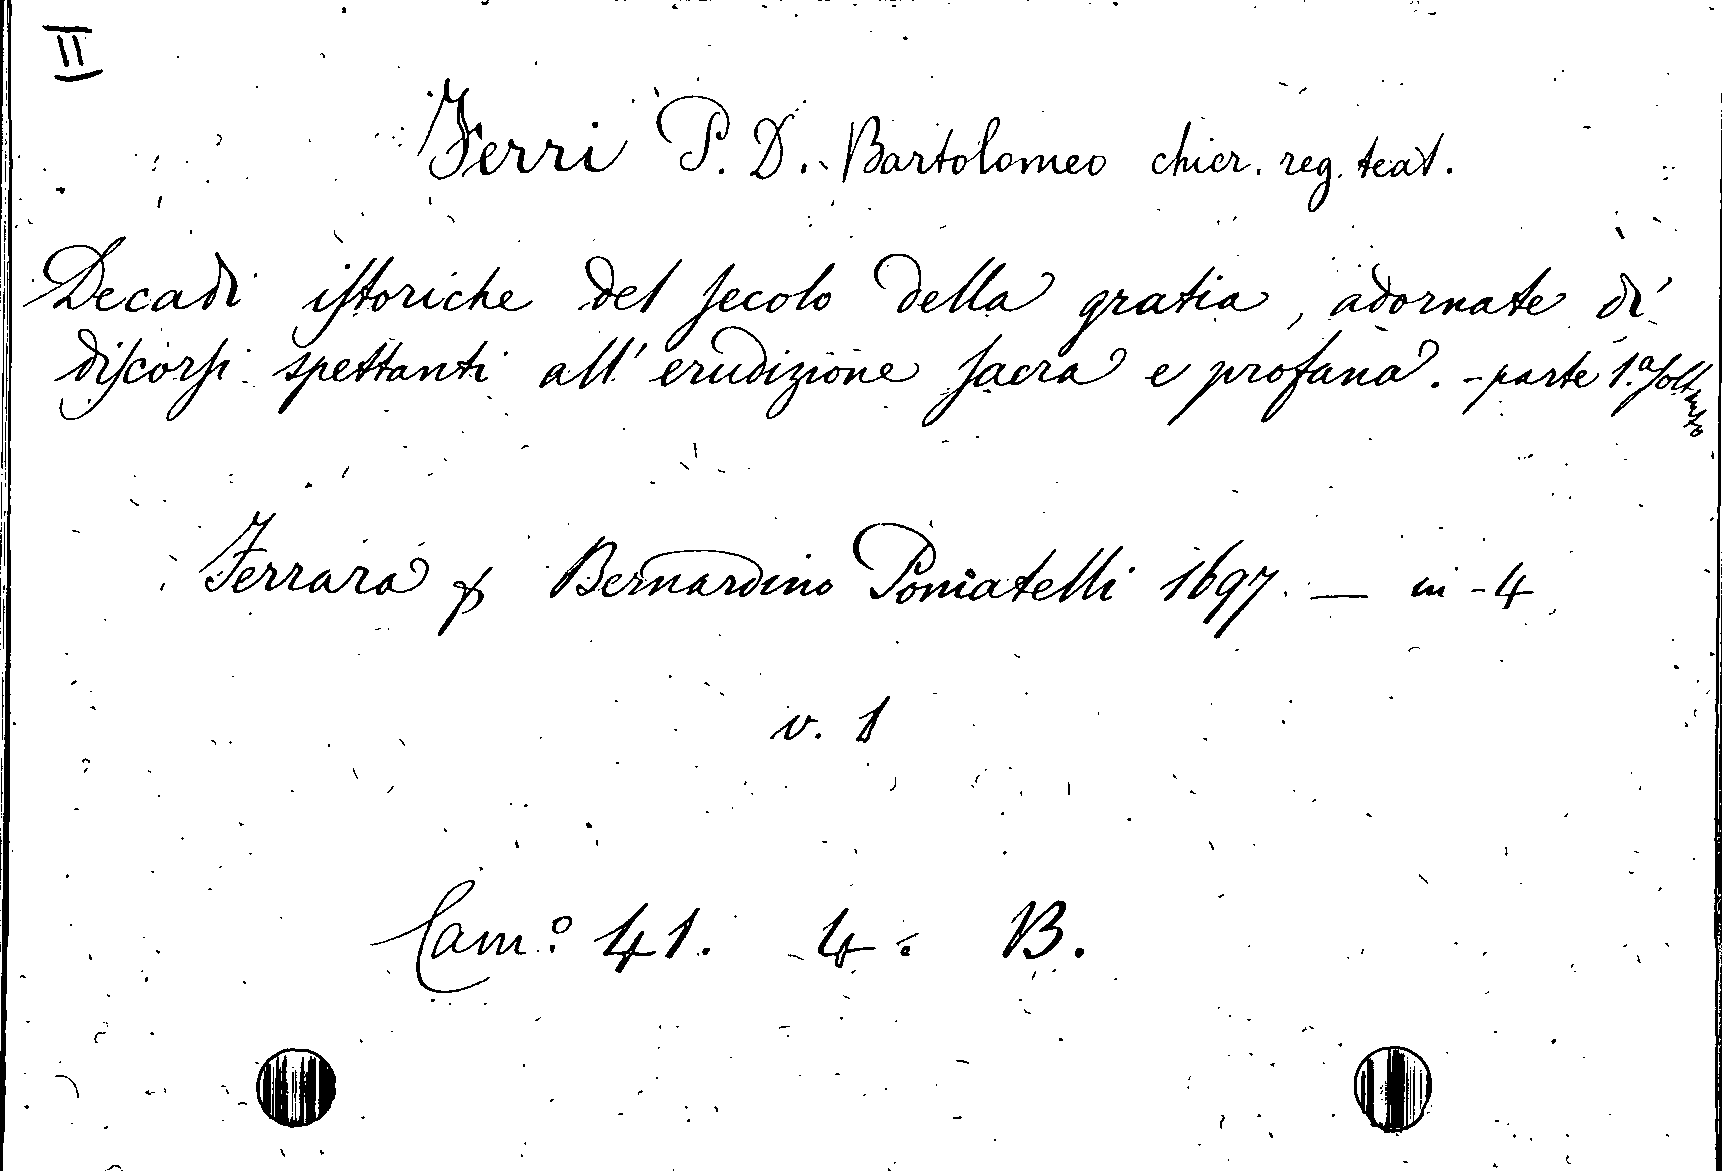 II
Ferri P. D. Bartolomeo chier. reg. teat.
Decadi istoriche del secolo della gratia, adornate di
discorsi spettanti all' erudizione sacra e profana. - parte 1.ª soltanto
Ferrara p Bernardino Pomatelli 1697. — in-4
v. 1
Cam.º 41. 4. B.